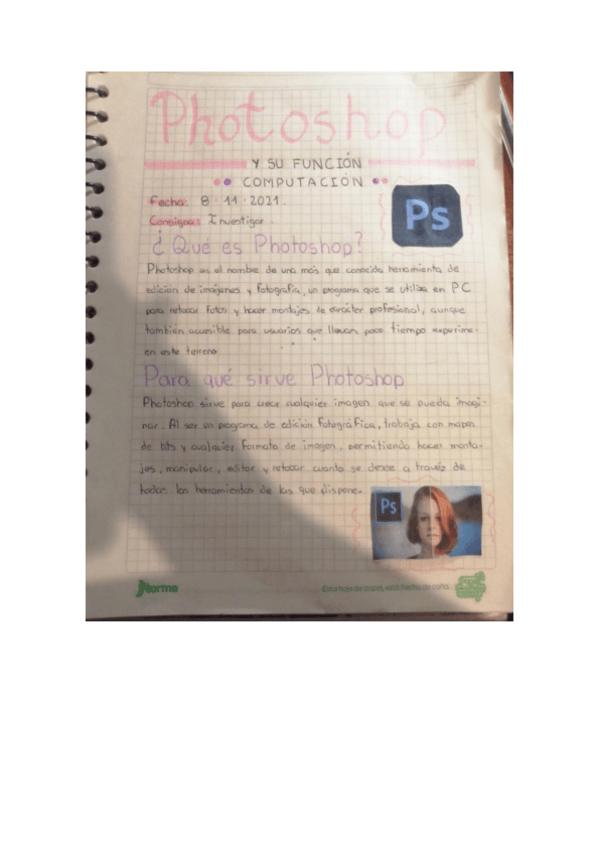 Photoshop
Y SU FUNCIÓN
COMPUTACIÓN
Fecha: 8 · 11 · 2021.
Consigna: Investigar.
Ps
¿Qué es Photoshop?
Photoshop es el nombre de una más que conocida herramienta de
edición de imágenes y fotografía, un programa que se utiliza en PC
para retocar fotos y hacer montajes de carácter profesional, aunque
también accesible para usuarios que llevan poco tiempo experime-
en este terreno
Para qué sirve Photoshop
Photoshop sirve para crear cualquier imagen que se pueda imagi-
nar. Al ser un programa de edición fotográfica, trabaja con mapas
de bits y cualquier formato de imagen, permitiendo hacer monta-
jes, manipular, editar y retocar cuanto se desee a través de
todas las herramientas de las que dispone.
Ps
Norma
Esta hoja de papel, está hecha de caña